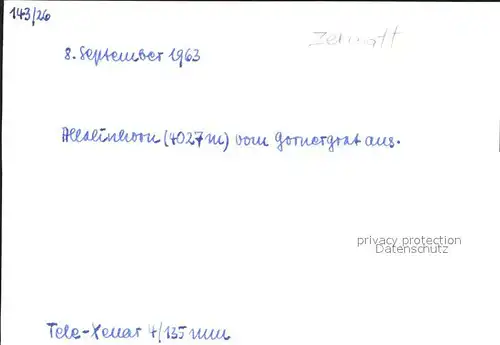 143/26
Zermatt
8. September 1963
Allalinhorn (4027 m) vom Gornergrat aus.
privacy protection
Datenschutz
Tele-Xenar 4/135 mm